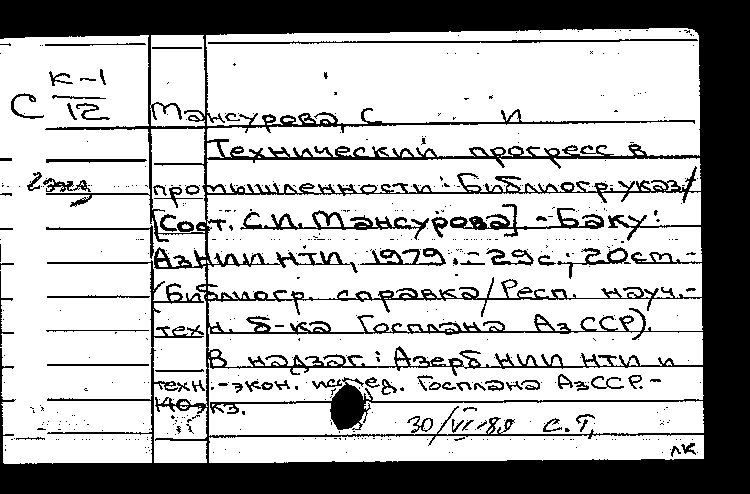 С К-1/12
Мансурова, С И
Технический прогресс в
2 экз
промышленности: Библиогр. указ/
[Сост. С.И. Мансурова]. - Баку:
АзНИИНТИ, 1979. - 29 с.; 20 ст. -
(Библиогр. справка/Респ. науч.-
техн. б-ка Госплана АзССР).
В надзаг.: Азерб. НИИ НТИ и
техн.-экон. исслед. Госплана АзССР. -
140 экз.
30/VI-80 С.Т,
ЛК